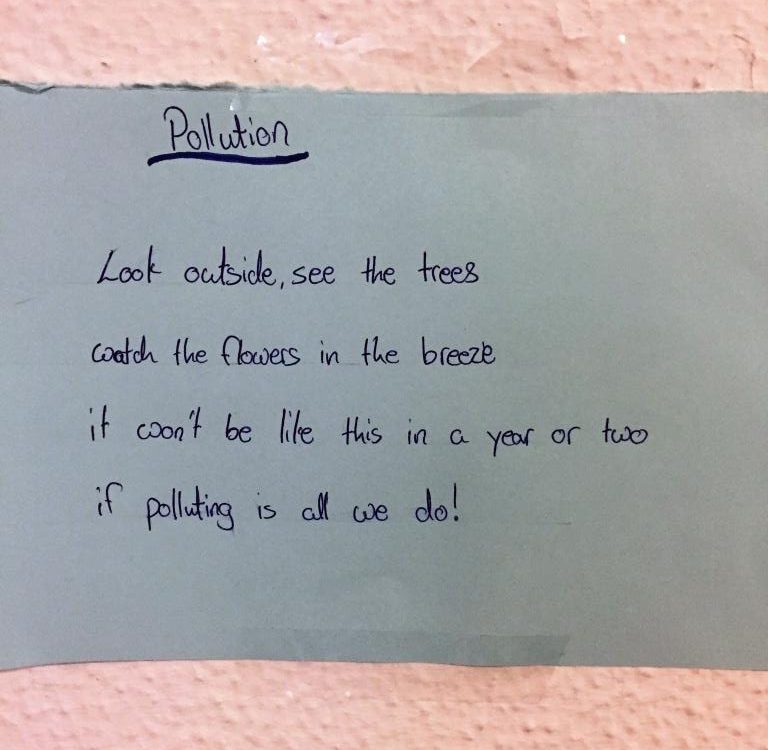 Pollution
Look outside, see the trees
watch the flowers in the breeze
it won't be like this in a year or two
if polluting is all we do!